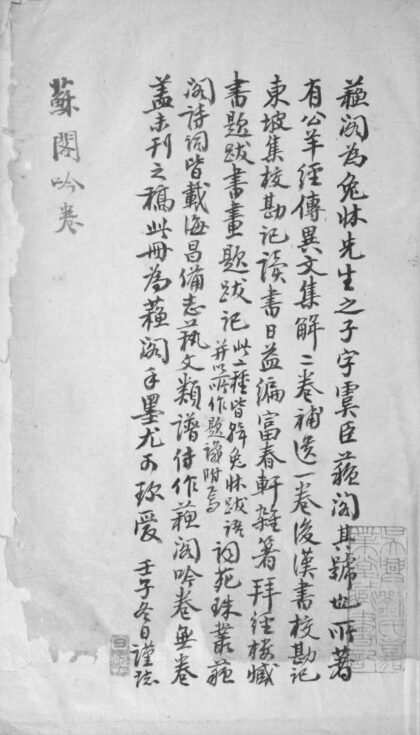 蘓閣為兔牀先生之子字虞臣蘓閣其號也所著
有公羊經傳異文集解二卷補遺一卷後漢書校勘記
東坡集校勘記讀書日益編富春軒雜箸拜經樓藏
書題跋書畫題跋記此二種皆輯兔牀跋語并以所作題識附焉詞苑珠叢蘓
閣詩詞皆載海昌備志藝文類譜作蘓閣吟卷無卷
蓋未刊之稿此冊為蘓閣手墨尤可珍愛 壬子冬日謹誌
蘇閣吟卷
吳興劉氏嘉
業堂藏書記